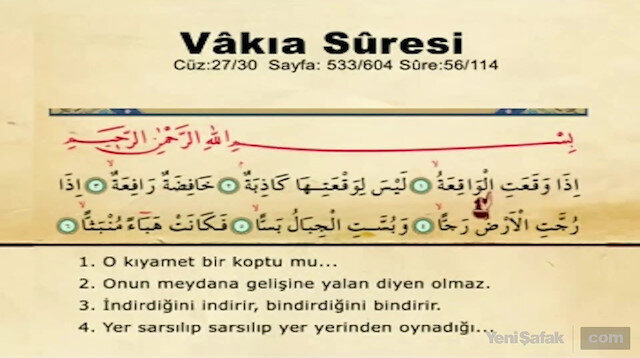 Vâkıa Sûresi
Cüz:27/30 Sayfa: 533/604 Sûre:56/114
بِسْمِ اللّٰهِ الرَّحْمٰنِ الرَّحِيمِ
اِذَا وَقَعَتِ الْوَاقِعَةُۙ ﴿١﴾ لَيْسَ لِوَقْعَتِهَا كَاذِبَةٌۢ ﴿٢﴾ خَافِضَةٌ رَافِعَةٌۙ ﴿٣﴾ اِذَا
رُجَّتِ الْاَرْضُ رَجًّاۙ ﴿٤﴾ وَبُسَّتِ الْجِبَالُ بَسًّاۙ ﴿٥﴾ فَكَانَتْ هَبَٓاءً مُنْبَثًّاۙ ﴿٦﴾
1. O kıyamet bir koptu mu...
2. Onun meydana gelişine yalan diyen olmaz.
3. İndirdiğini indirir, bindirdiğini bindirir.
4. Yer sarsılıp sarsılıp yer yerinden oynadığı...
YeniŞafak .com